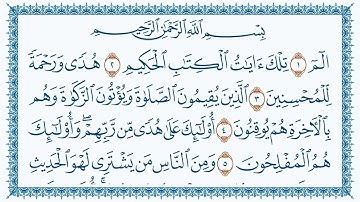 بِسْمِ اللَّهِ الرَّحْمَٰنِ الرَّحِيمِ
الٓمٓ ١ تِلْكَ ءَايَٰتُ ٱلْكِتَٰبِ ٱلْحَكِيمِ ٢ هُدًى وَرَحْمَةً
لِّلْمُحْسِنِينَ ٣ ٱلَّذِينَ يُقِيمُونَ ٱلصَّلَوٰةَ وَيُؤْتُونَ ٱلزَّكَوٰةَ وَهُم
بِٱلْءَاخِرَةِ هُمْ يُوقِنُونَ ٤ أُو۟لَٰٓئِكَ عَلَىٰ هُدًى مِّن رَّبِّهِمْ ۖ وَأُو۟لَٰٓئِكَ
هُمُ ٱلْمُفْلِحُونَ ٥ وَمِنَ ٱلنَّاسِ مَن يَشْتَرِى لَهْوَ ٱلْحَدِيثِ